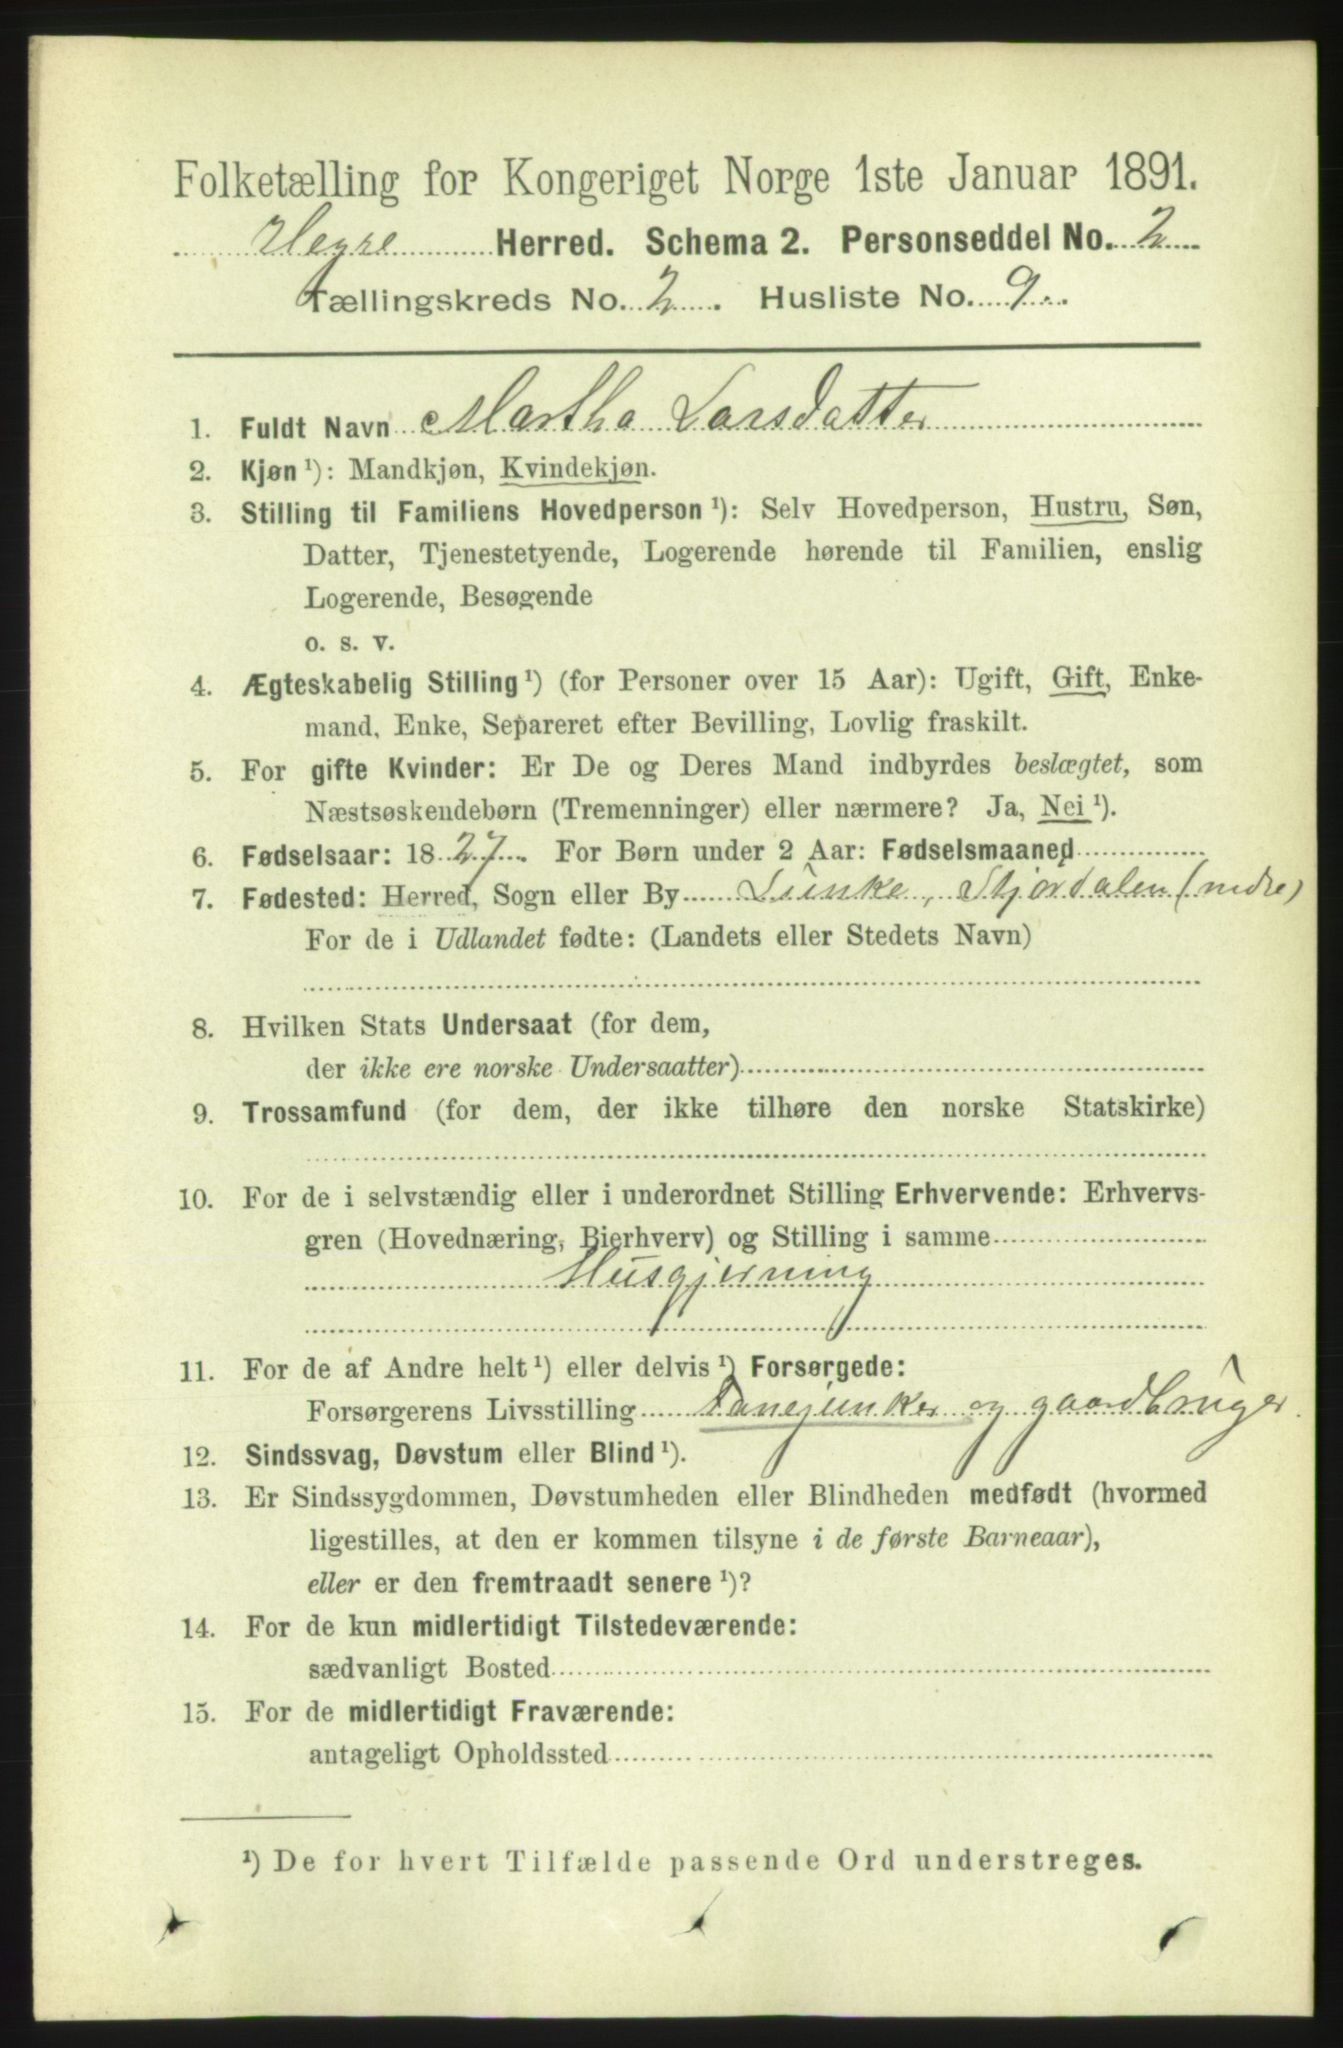 Folketælling for Kongeriget Norge 1ste Januar 1891.
Hegre Herred. Schema 2. Personseddel No. 2
Tællingskreds No. 2. Husliste No. 9.
1. Fuldt Navn Martha Larsdatter
2. Kjøn ¹): Mandkjøn, Kvindekjøn.
3. Stilling til Familiens Hovedperson ¹): Selv Hovedperson, Hustru, Søn,
Datter, Tjenestetyende, Logerende hørende til Familien, enslig
Logerende, Besøgende
o. s. v.
4. Ægteskabelig Stilling ¹) (for Personer over 15 Aar): Ugift, Gift, Enke-
mand, Enke, Separeret efter Bevilling, Lovlig fraskilt.
5. For gifte Kvinder: Er De og Deres Mand indbyrdes beslægtet, som
Næstsøskendebørn (Tremenninger) eller nærmere? Ja, Nei ¹).
6. Fødselsaar: 1827. For Børn under 2 Aar: Fødselsmaaned
7. Fødested: Herred, Sogn eller By Lunke, Stjørdalen (nedre)
For de i Udlandet fødte: (Landets eller Stedets Navn)
8. Hvilken Stats Undersaat (for dem,
der ikke ere norske Undersaatter)
9. Trossamfund (for dem, der ikke tilhøre den norske Statskirke)
10. For de i selvstændig eller i underordnet Stilling Erhvervende: Erhvervs-
gren (Hovednæring, Bierhverv) og Stilling i samme
Husgjerning
11. For de af Andre helt ¹) eller delvis ¹) Forsørgede:
Forsørgerens Livsstilling og gaardbruger
12. Sindssvag, Døvstum eller Blind ¹).
13. Er Sindssygdommen, Døvstumheden eller Blindheden medfødt (hvormed
ligestilles, at den er kommen tilsyne i de første Barneaar),
eller er den fremtraadt senere ¹)?
14. For de kun midlertidigt Tilstedeværende:
sædvanligt Bosted
15. For de midlertidigt Fraværende:
antageligt Opholdssted
¹) De for hvert Tilfælde passende Ord understreges.